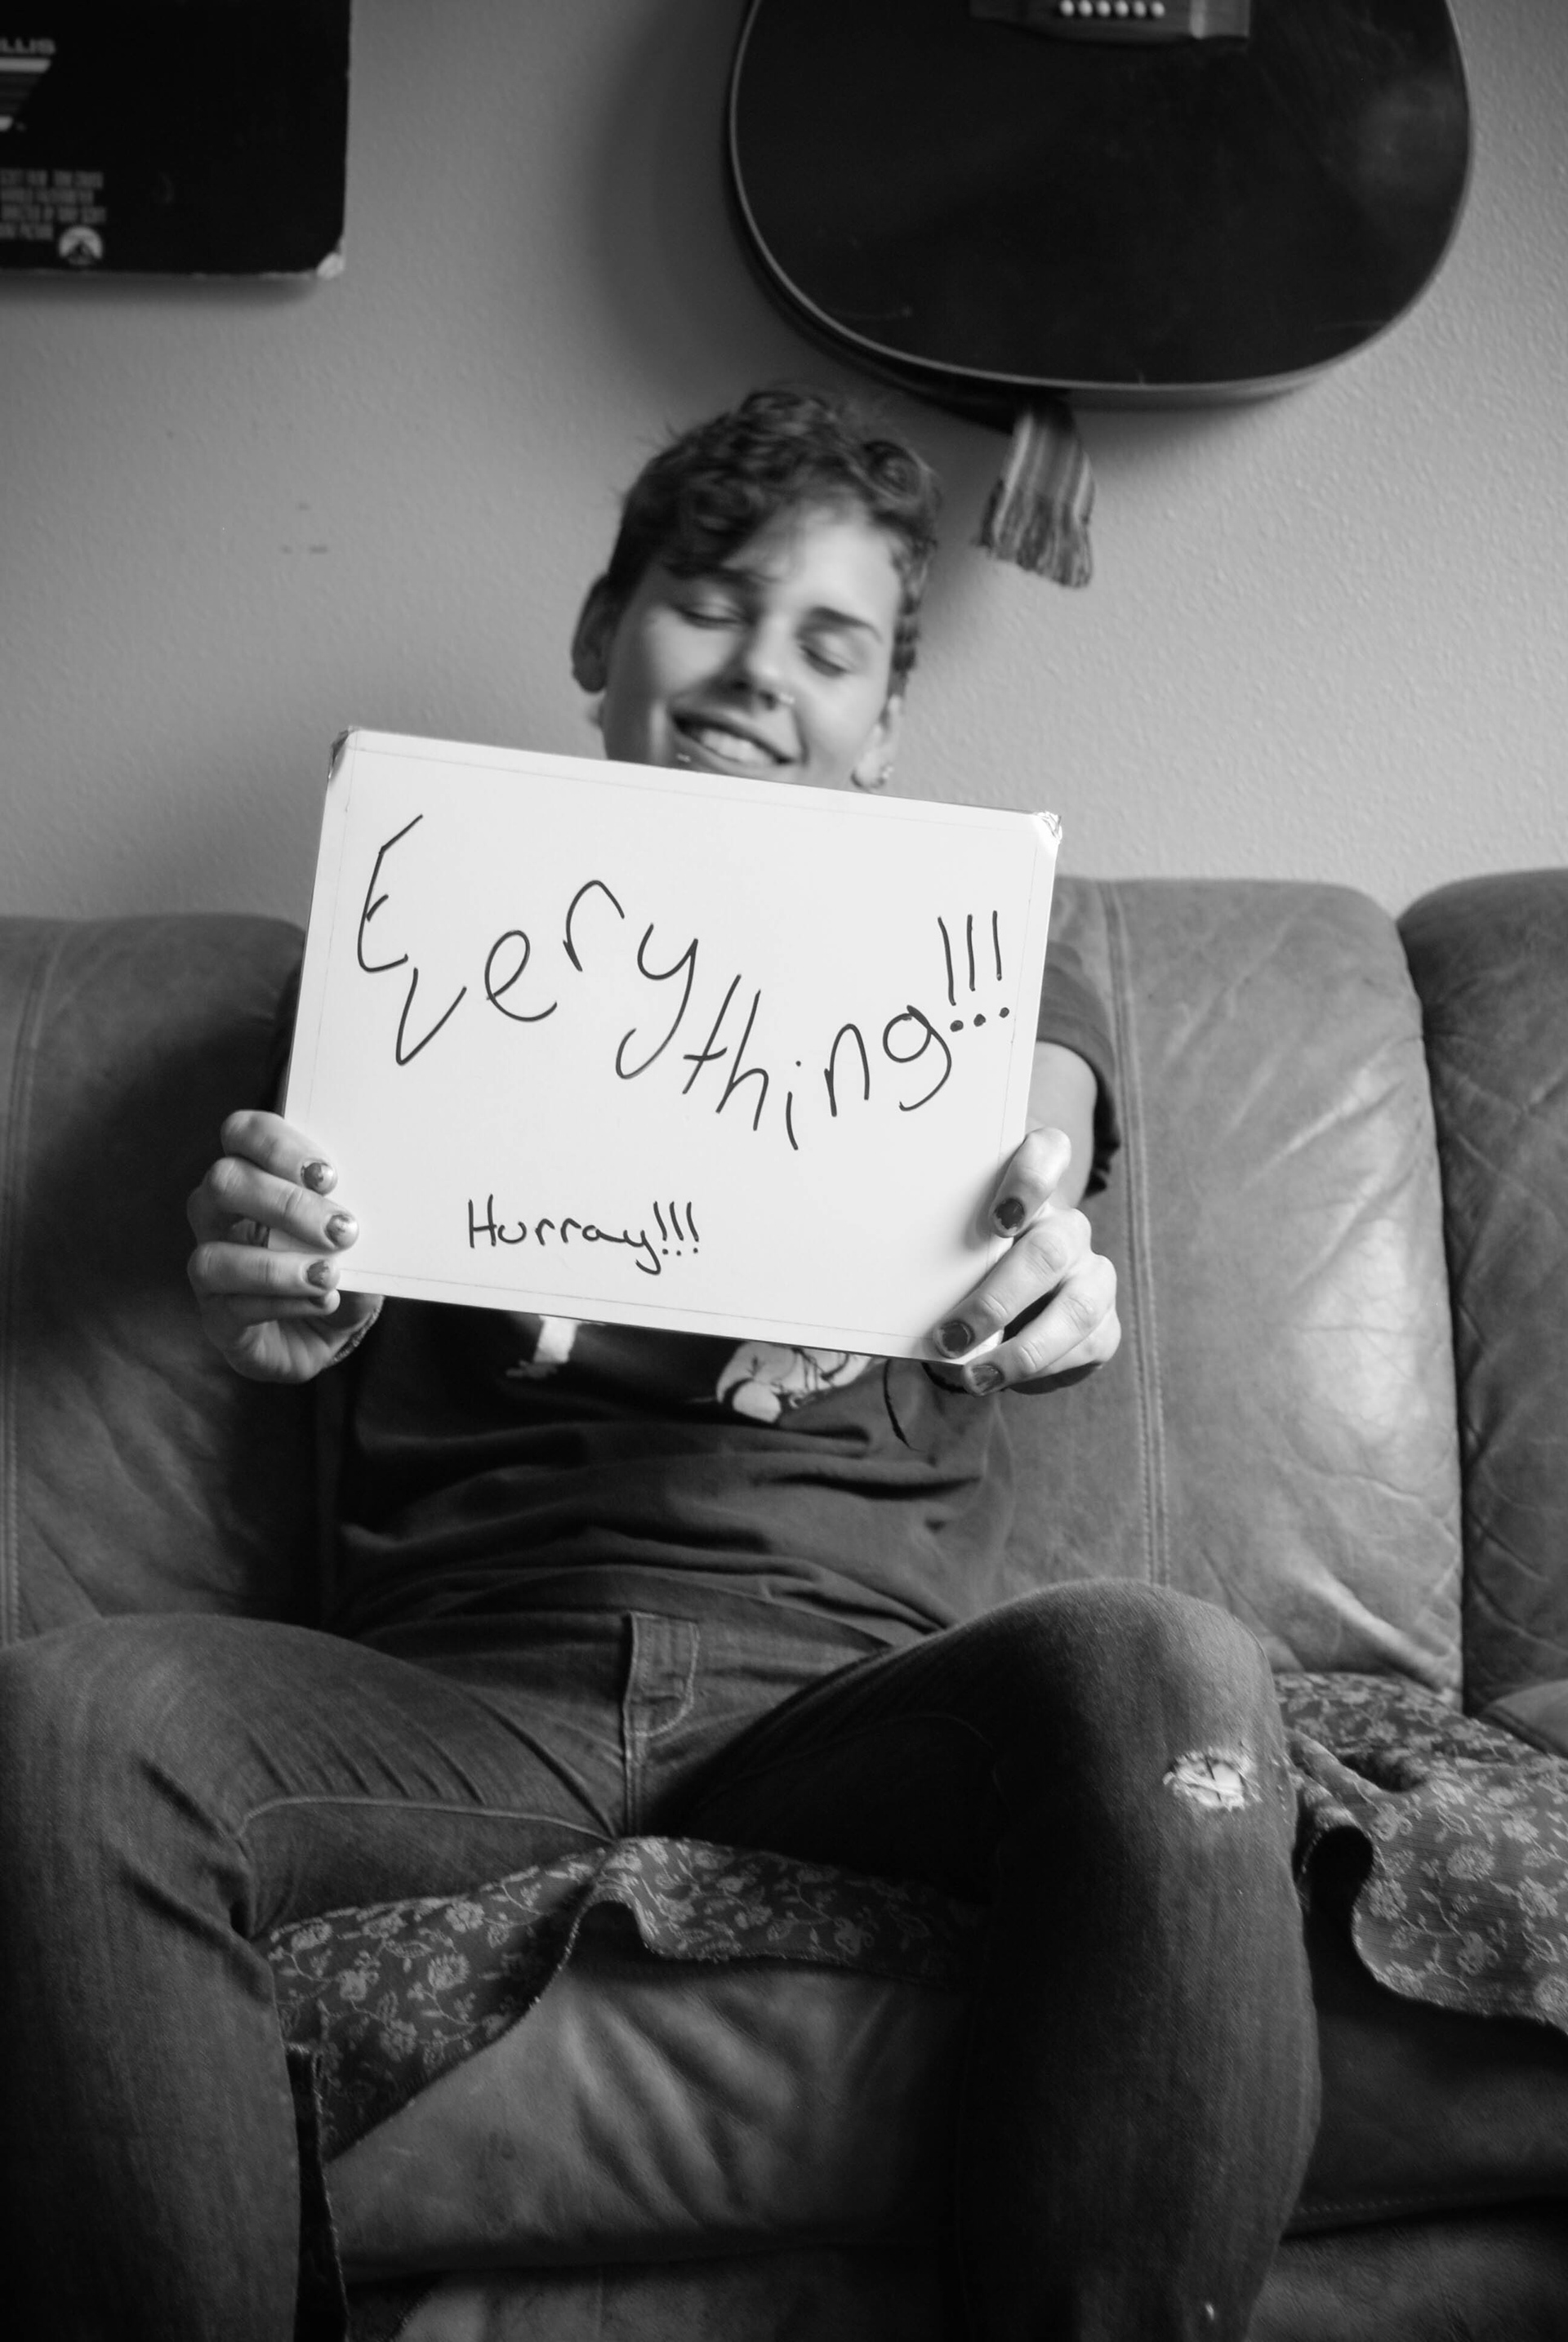 LLIS
Everything!!!
Hurray!!!